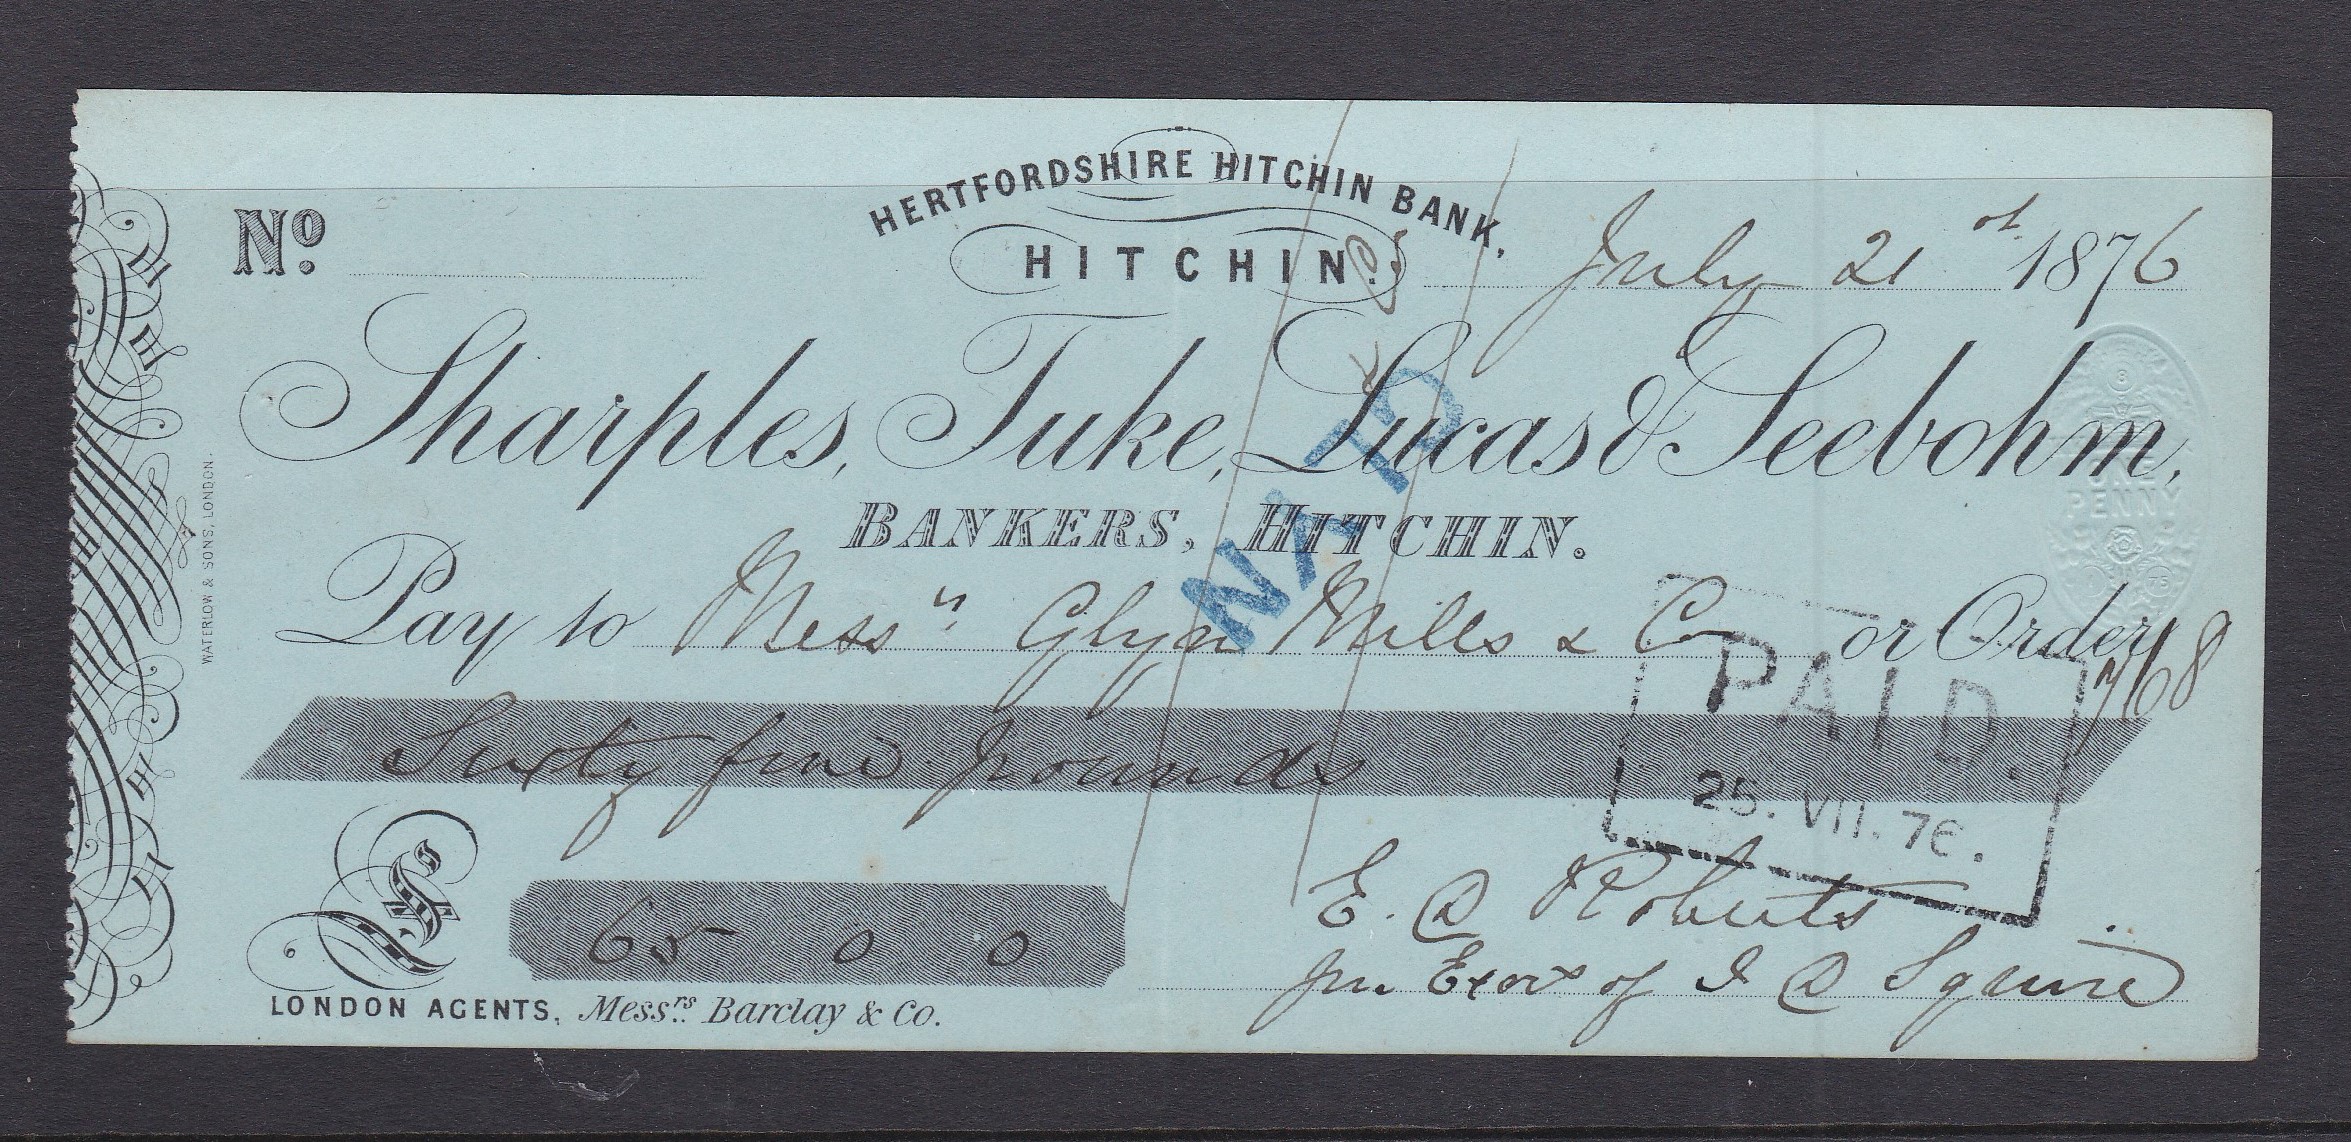 HERTFORDSHIRE HITCHIN BANK,
HITCHIN.
Nº.
July 21st 1876
Sharples, Tuke, Lucas & Seebohm,
BANKERS, HITCHIN.
ONE
PENNY
Pay to Messrs Glyn Mills & Co or Order
768
Sixty five pounds
PAID.
25. VII. 76.
£ 65 0 0
E. Roberts
of Squire
LONDON AGENTS, Messrs. Barclay & Co.
WATERLOW & SONS, LONDON.